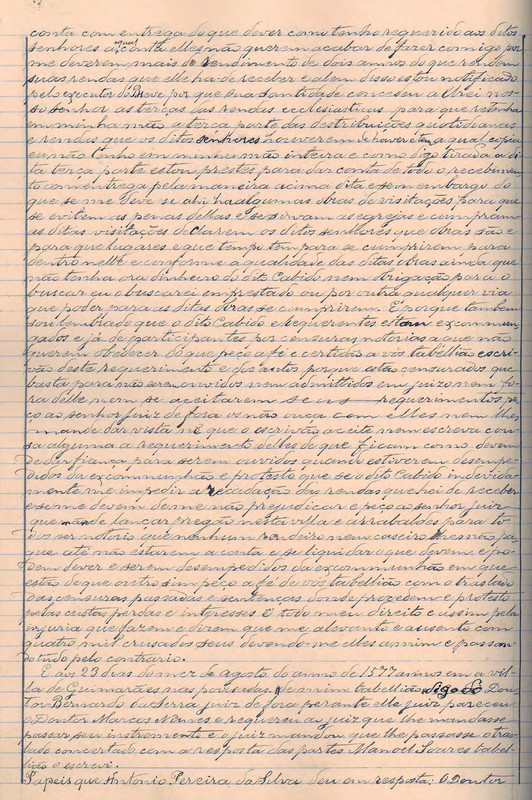 conta com entrega do que dever como tenho requerido aos ditos
senhores a qual conta elles não querem acabar de fazer comigo por
me deverem mais de rendimento de dois annos do que rendem
suas rendas que elle ha de receber e alem disso estou notificado
pelo executor do Breve por que sua santidade concedeu a El-rei nos-
so senhor as terças das rendas ecclesiasticas para que retenha
em minha mão a terça parte das distribuições quotidianas
e rendas que os ditos senhores houverem de haver e tem a qual
eu não tenho em minha mão inteira e como digo tirada a di-
ta terça parte estou prestes para dar conta de todo o recebimen-
to com entrega pela maneira acima dita e sem embargo do
que se me deve se ahi ha algumas obras de visitações para que
se evitem as penas dellas e se sirvam as egrejas e cumpram
as ditas visitações declarem os ditos senhores que obras são e
para que lugares e que tempo tem para se cumprirem para
dentro nelle e conforme a qualidade das ditas obras ainda que
não tenha ora dinheiro do dito Cabido nem obrigação para o
buscar eu o buscarei emprestado ou por outra qualquer via
que poder para as ditas obras se cumprirem. E porque tambem
sou lembrado que o dito Cabido e Requerentes estam excommun-
gados e já de participantes por censuras notorias a que não
querem obedecer do que peço a fé e certidão a vós tabellião escri-
vão deste requerimento e dos autos porque estão censurados que
basta para não serem ouvidos nem admittidos em juizo nem fó-
ra delle nem se aceitarem seus requerimentos pe-
ço ao senhor juiz de fora os não ouça com elles nem lhe
mande dar vista nē que o escrivão aceite nem escreva cou-
sa alguma a requerimento delles do que ficam como devem
de dar fiança para serem ouvidos quando estiverem desempe-
didos da excommunhão e protesto que se o dito Cabido indevida-
mente me impedir a recadação das rendas que hei de receber
e se me devem de me não prejudicar e peço ao senhor juiz
que mande lançar pregão nesta villa e arrabaldes para to-
dos ser notorio que nenhum rendeiro nem caseiro lhes não pa-
gue até não estarem á conta e se liquidar o que devem e po-
dem dever e serem desempedidos da excommunhão em que
estão de que outro sim peço a fé de vós tabellião com o traslado
das censuras passadas e sentenças donde procedem e protesto
pelas custas perdas e interesses e todo meu direito e assim pela
injuria que fazem e direm que me alevanto e ausento com
quatro mil crusados seus devendo-me elles a mim e passan-
do tudo pelo contrario.
E aos 23 dias do mez de Agosto do anno de 1577 annos em a vil-
la de Guimarães nas pousadas de mim tabellião digo do Dou-
tor Bernardo da Serra juiz de fora perante elle juiz pareceu
o Doutor Marcos Nunes e requereu ao juiz que lhe mandasse
passar seu instromento e o juiz mandou que lhe passasse o tras-
lado concertado com a resposta das partes Manoel Soares tabel-
lião o escrevi.
Papeis que Antonio Pereira da Silva deu em resposta: O Doutor